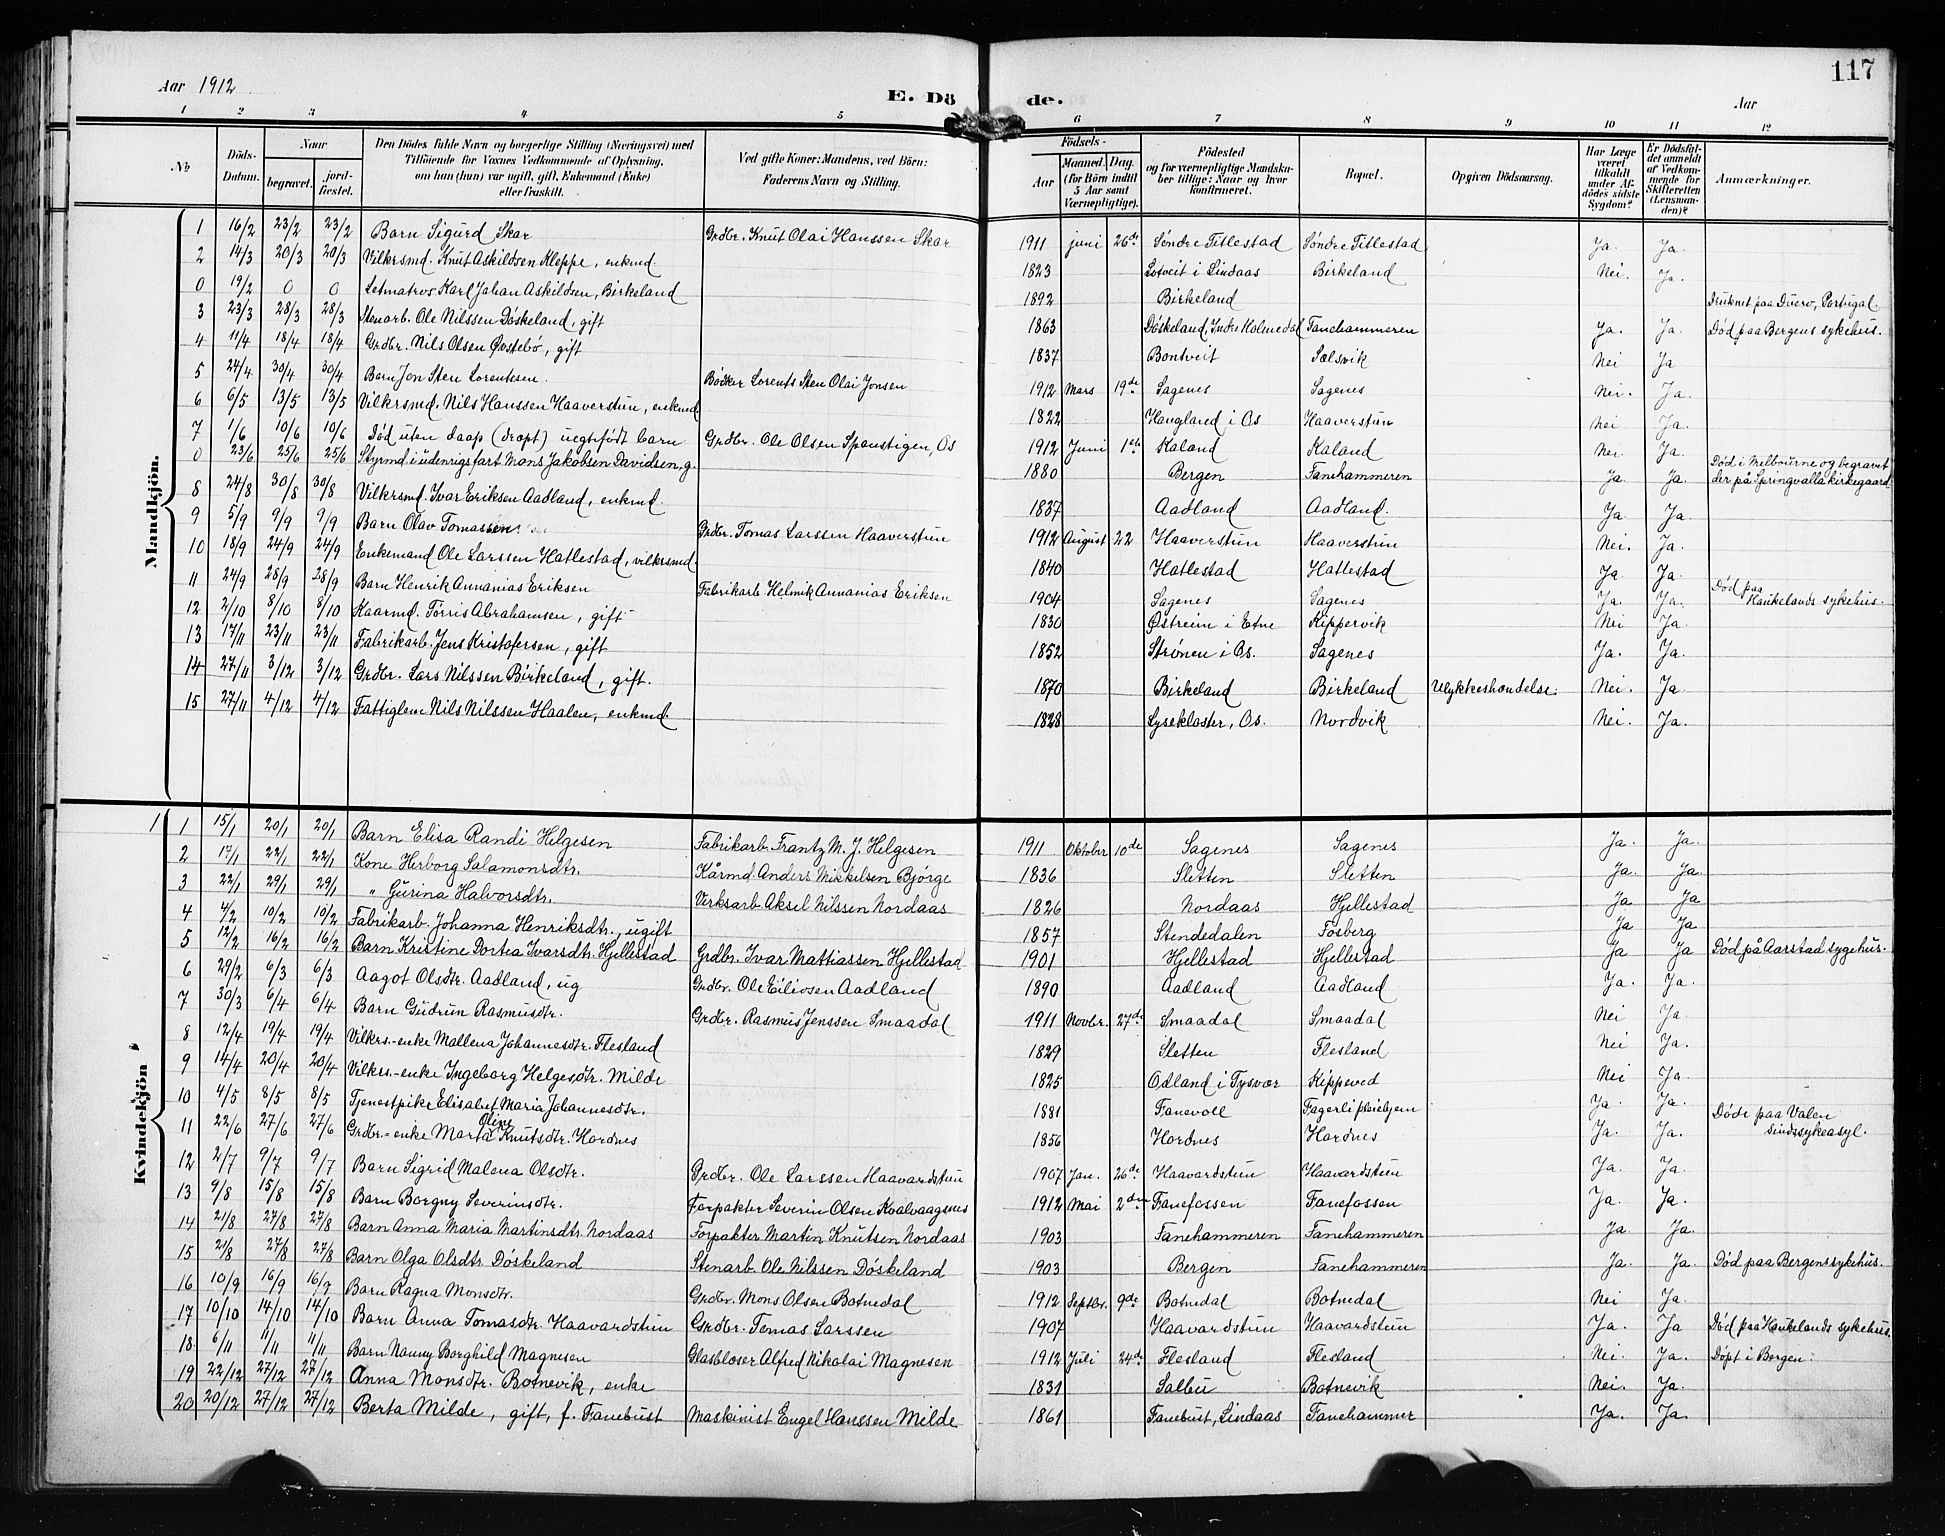 117
Aar 1912
E. Dö de.
Aar
1 2 3 4 5 6 7 8 9 10 11 12
No
Döds-Datum.
Naar
begravet.
jord-fæstet.
Den Dödes fulde Navn og borgerlige Stilling (Næringsvei) med
Tilföiende for Voxnes Vedkommende af Oplysning,
om han (hun) var ugift, gift, Enkemand (Enke)
eller fraskilt.
Ved gifte Koner: Mandens, ved Börn:
Faderens Navn og Stilling.
Födsels-
Aar
Maaned. Dag.
(for Börn indtil
5 Aar samt
Værnepligtige).
Födested
og for værnepligtige Mandska-
ber tillige: Naar og hvor
konfirmeret.
Bopæl.
Opgiven Dödsaarsag.
Har Læge
været
tilkaldt
under Af-
dödes sidste
Sygdom?
Er Dödsfal-
det anmeldt
af Vedkom-
mende for
Skifteretten
(Lensman-
den)?
Anmærkninger.
Mandkjön.
1 16/2 23/2 23/2 Barn Sigurd Skar Grdbr. Knut Olai Hanssen Skar 1911 juni 26de Söndre Titlestad Söndre Titlestad Ja. Ja.
2 14/3 20/3 20/3 Vilkrsmd. Knut Askildsen Kleppe, enkmd 1823 Lötveit i Lindaas Birkeland Nei. Ja.
0 19/2 0 0 Letmatros Karl Johan Askildsen, Birkeland 1892 Birkeland Druknet paa Duero, Portugal.
3 23/3 28/3 28/3 Stenarb. Ole Nilssen Döskeland, gift 1863 Döskeland, Indre Holmedal Fanehammeren Ja. Ja. Död paa Bergens sykehus.
4 11/4 18/4 18/4 Grdbr. Nils Olsen Övstebö, gift 1837 Bontveit Sælsvik Nei Ja
5 24/4 30/4 30/4 Barn Jon Sten Lorentsen. Bödker Lorents Sten Olai Jonsen 1912 Mars 19de Sagenes Sagenes Nei. Ja.
6 6/5 13/5 13/5 Vilkrsmd. Nils Hanssen Haaverstun, enkmd 1822 Haugland i Os Haaverstun Nei Ja.
7 1/6 10/6 10/6 Död uten daap (dræpt) uegtefödt barn Grdbr. Ole Olsen Spaustigen, Os 1912 Juni 1ste Kaland Kaland Nei Ja.
0 23/6 25/6 25/6 Styrmd i udenrigsfart Mons Jakobsen Davidsen, g. 1880 Bergen Fanehammeren Ja. Ja. Död i Melbourne og begravet der på Springvalla kirkegaard
8 24/8 30/8 30/8 Vilkrsmd. Ivar Eriksen Aadland, enkmd. 1837 Aadland Aadland. Ja Ja.
9 5/9 9/9 9/9 Barn Olav Tomassen Grdbr. Tomas Larssen Haaverstun 1912 August 22 Haaverstun Haaverstun Nei. Ja.
10 18/9 24/9 24/9 Enkemand Ole Larssen Hatlestad, vilkrsmd. 1840 Hatlestad Hatlestad Ja Ja.
11 24/9 28/9 28/9 Barn Henrik Annanias Eriksen Fabrikarb. Helmik Annanias Eriksen 1904 Sagenes Sagenes Ja. Ja. Död paa Haukelands sykehus.
12 2/10 8/10 8/10 Kaarmd. Törris Abrahamsen, gift 1830 Östreim i Etne Kippervik Nei Ja.
13 17/11 23/11 23/11 Fabrikarb. Jens Kristofersen, gift 1852 Strönen i Os. Sagenes Ja. Ja.
14 27/11 3/12 3/12 Grdbr. Lars Nilssen Birkeland, gift. 1870 Birkeland Birkeland Ulykkeshændelse. Nei. Ja
15 27/11 4/12 4/12 Fattiglem Nils Nilssen Haalen, enkmd. 1828 Lysekloster, Os. Nordvik Nei. Ja.
Kvindekjön
1 1 15/1 20/1 20/1 Barn Elisa Randi Helgesen Fabrikarb. Frantz M. J. Helgesen 1911 Oktober 10de Sagenes Sagenes Ja. Ja.
2 17/1 22/1 22/1 Kone Herborg Salamonsdtr. Kårmd. Anders Mikkelsen Björge 1836 Sletten Sletten Ja. Ja.
3 22/1 29/1 29/1 " Gurina Halvorsdtr. Verksarb. Aksel Nilssen Nordaas 1826 Nordaas Hjellestad Ja Ja
4 4/2 10/2 10/2 Fabrikarb. Johanna Henriksdtr., ugift 1857 Stendedalen Fosberg Ja Ja
5 12/2 16/2 16/2 Barn Kristine Dortea Ivarsdtr. Hjellestad Grdbr. Ivar Mattiassen Hjellestad 1901 Hjellestad Hjellestad Ja Ja Död på Aarstad sygehus.
6 29/2 6/3 6/3 Aagot Olsdtr. Aadland, ug Grdbr. Ole Eiliosen Aadland 1890 Aadland Aadland Ja. Ja.
7 30/3 6/4 6/4 Barn Gudrun Rasmusdtr. Grdbr. Rasmus Jenssen Smaadal 1911 Novbr. 27de Smaadal Smaadal Nei Ja.
8 12/4 19/4 19/4 Vilkrs.-enke Mallena Johannesdtr. Flesland 1829 Sletten Flesland Nei Ja.
9 14/4 20/4 20/4 Vilkrs.-enke Ingeborg Helgesdtr. Milde 1825 Odland i Tysvær Kippeved Nei Ja.
10 4/5 8/5 8/5 Tjenestpike Elisabet Maria Johannesdtr. 1881 Fanevoll Fagerli pleiehjem Ja. Ja. Döde paa Valen sindssykeasyl.
11 22/6 27/6 27/6 Grdbr.-enke Marta Oline Knutsdtr. Hordnes 1856 Hordnes Hordnes Ja. Ja.
12 2/7 9/7 9/7 Barn Sigrid Malena Olsdtr. Grdbr. Ole Larssen Haavardstun 1907 Jan. 26de Haavardstun Haavardstun Ja. Ja
13 9/8 15/8 15/8 Barn Borgny Severinsdtr. Forpakter Severin Olsen Koalvaagsnes 1912 Mai 2den Fanefossen Fanefossen Ja. Ja.
14 21/8 27/8 27/8 Barn Anna Maria Martinsdtr. Nordaas Forpakter Martin Knutsen Nordaas 1903 Fanehammeren Fanehammeren Ja Ja.
15 21/8 27/8 27/8 Barn Olga Olsdtr. Döskeland Stenarb. Ole Nilssen Döskeland 1903 Bergen Fanehammeren Ja. Ja. Död paa Bergens sykehus.
16 10/9 16/9 16/9 Barn Ragna Monsdtr. Grdbr. Mons Olsen Botnedal 1912 Septbr. 9de Botnedal Botnedal Nei Ja.
17 10/10 14/10 14/10 Barn Anna Tomasdtr. Haavardstun Grdbr. Tomas Larssen 1907 Haavardstun Haavardstun Ja. Ja Död paa Haukelands sykehus.
18 6/11 11/11 11/11 Barn Nanny Borghild Magnesen Glasbloser Alfred Nikolai Magnesen 1912 Juli 24de Flesland Flesland Nei. Ja. Döpt i Bergen.
19 22/12 27/12 27/12 Anna Monsdtr. Botnevik, enke 1831 Salbu Botnevik Nei. Ja.
20 20/12 27/12 27/12 Berta Milde, gift, f. Fanebust Maskinist Engel Hanssen Milde 1861 Fanebust, Lindaas Fanehammer Ja. Ja.